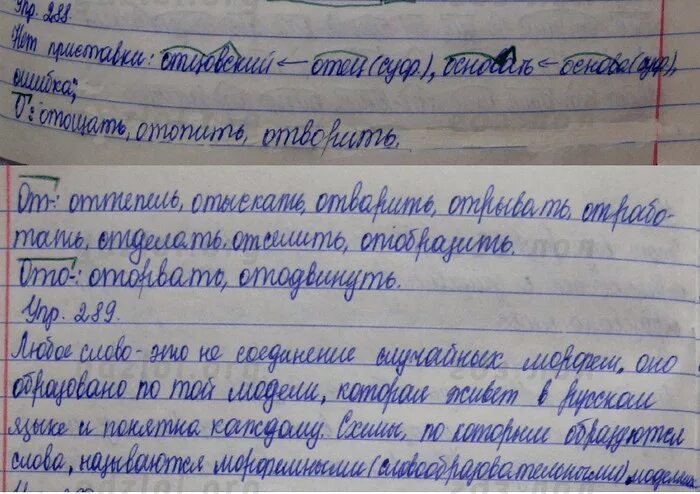 Упр. 288.
Нет приставки: отцовский ← отец (суф.), основать ← основа (суф),
ошибка;
О: отощать, отопить, отворить.
От-: оттепель, отыскать, отварить, отрывать, отрабо-
тать, отделать, отселить, отобразить.
Ото-: оторвать, отодвинуть.
Упр. 289.
Любое слово - это не соединение случайных морфем, оно
образовано по той модели, которая живет в русском
языке и понятна каждому. Схемы, по которым образуются
слова, называются морфемными (словообразовательными) моделями